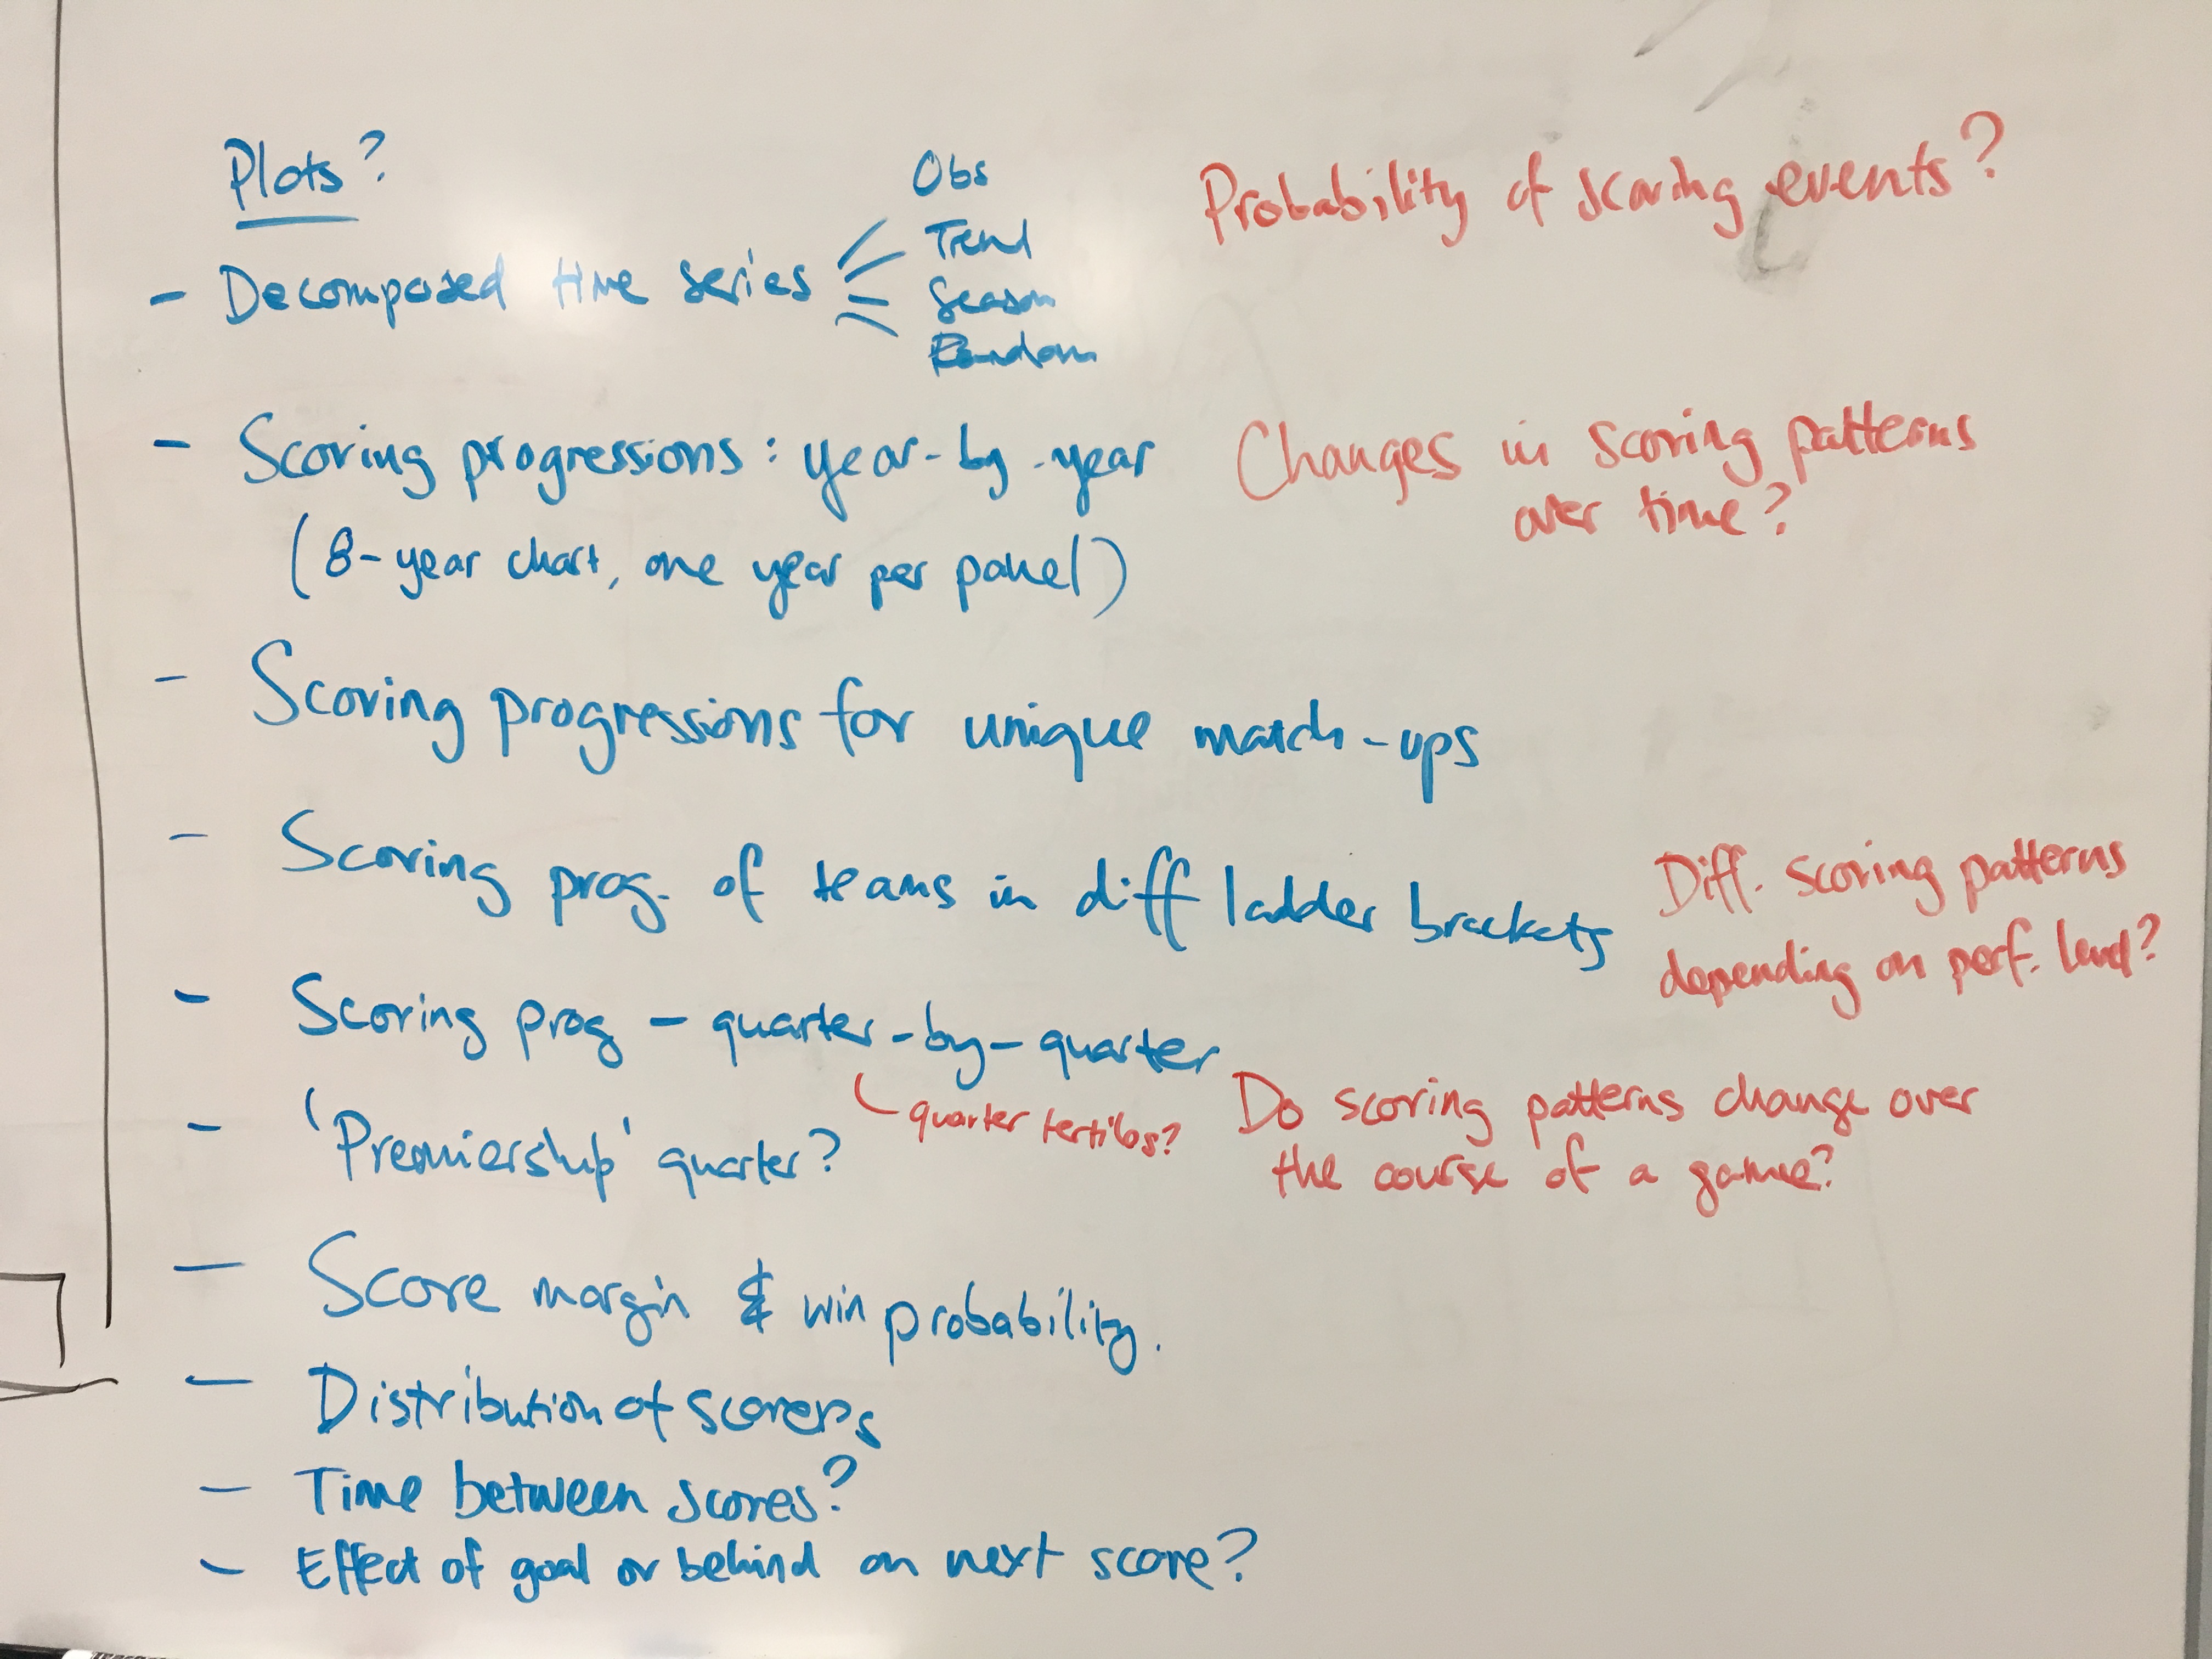 Plots?
- Decomposed time series
Obs
Trend
Season
Random
Probability of scoring events?
- Scoring progressions: year-by-year
(8-year chart, one year per panel)
Changes in scoring patterns
over time?
- Scoring progressions for unique match-ups
- Scoring prog. of teams in diff ladder brackets
Diff. scoring patterns
depending on perf. level?
- Scoring prog - quarter-by-quarter
quarter tertiles?
Do scoring patterns change over
the course of a game?
- 'Premiership' quarter?
- Score margin & win probability.
- Distribution of scorers
- Time between scores?
- Effect of goal or behind on next score?